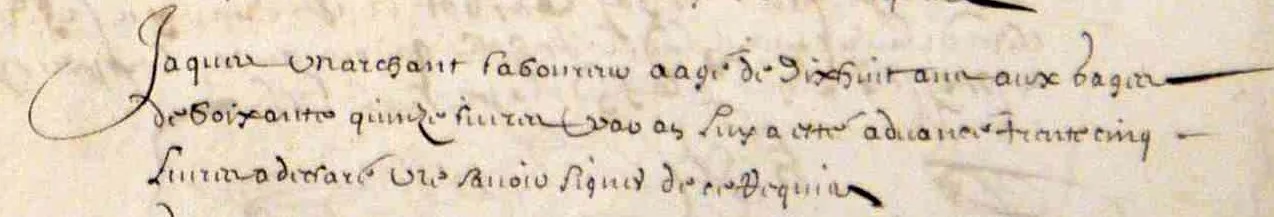 Jaques Marchant laboureur aagé de dixhuit ans aux gages
de soixante quinze livres par an luy a esté advancé trente cinq
livres a declaré ne savoir signer de ce requis